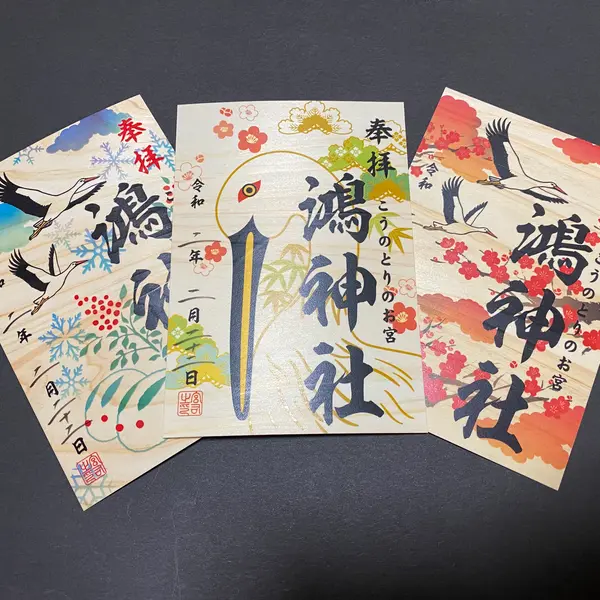 奉拝
鴻神
年 二月二十二日
奉拝
こうのとりのお宮
鴻神社
令和 二年 二月二十二日
うのとりのお宮
鴻神社
令和